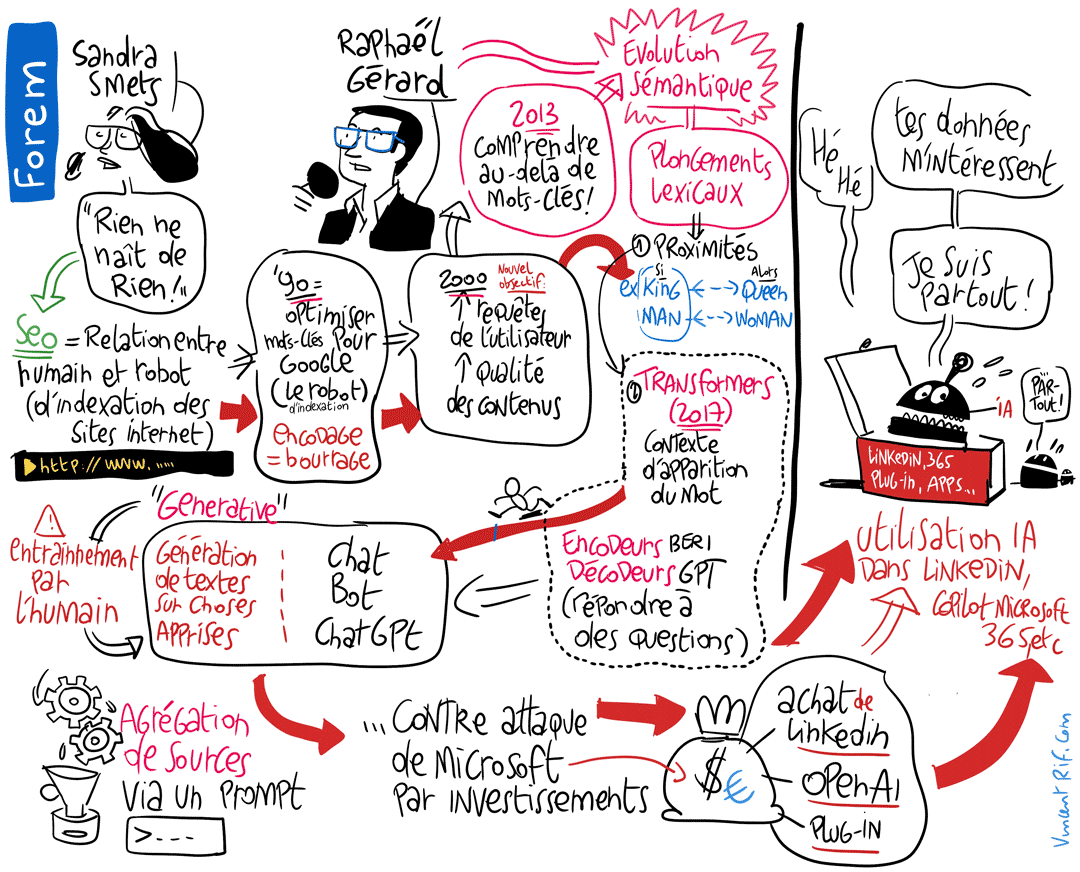 Forem
Sandra
Smets
"Rien ne
naît de
Rien!"
Seo = Relation entre
humain et robot
(d'indexation des
sites internet)
http://www. .....
'90 =
optimiser
mots-clés pour
Google
(le robot)
d'indexation
encodage
= bourrage
Raphaël
Gérard
2000 Nouvel
objectif:
↑ requêtes
de l'utilisateur
↑ qualité
des contenus
2013
comprendre
au-delà de
mots-clés!
Évolution
Sémantique
Plongements
lexicaux
① Proximités
Si
Alors
ex King <--> Queen
Man <--> Woman
② Transformers
(2017)
contexte
d'apparition
du mot
Encodeurs BERT
Décodeurs GPT
(répondre à
des questions)
"Generative"
Génération
de textes
sur choses
apprises
Chat
Bot
ChatGPT
entraînhement
par
l'humain
Agrégation
de sources
via un prompt
>----
... contre attaque
de Microsoft
par investissements
$ €
achat de
Linkedin
OpenAI
Plug-in
Hé
Hé
tes données
m'intéressent
Je suis
partout!
IA
PAR-
TOUT!
LinkedIn, 365
Plug-in, Apps...
Utilisation IA
dans LinkedIn,
Copilot Microsoft
365 etc
Vincent Rif.com